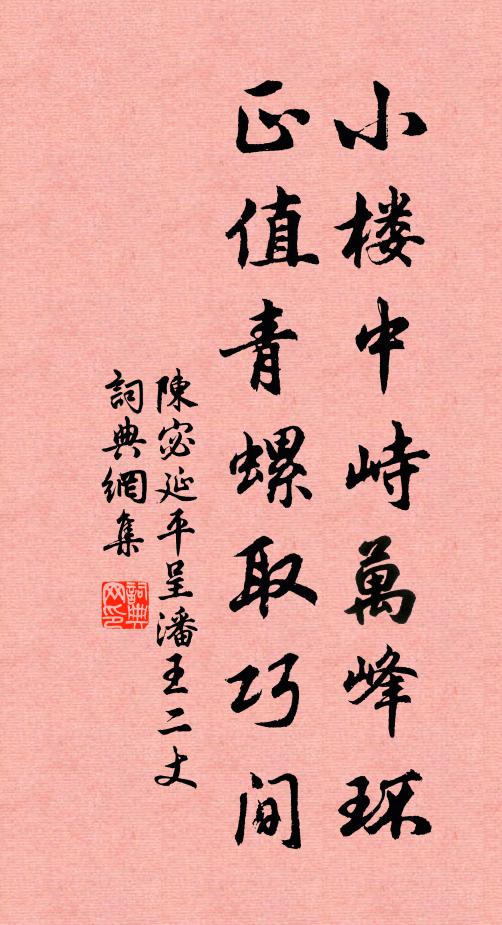 小楼中峙萬峰环
正值青螺取巧间
陳宓延平呈潘王二丈
詞典網集
詞典网印